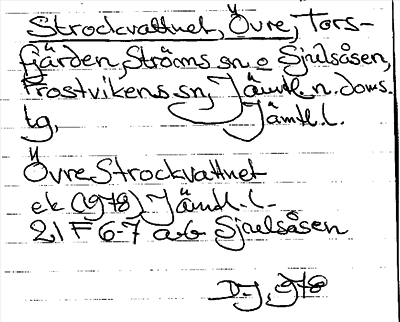 Strockvattnet, Övre, Tors-
fjärden, Ströms sn o Sjulsåsen,
Prostvikens sn, Jämtl. n. doms.
tg, Jämtl. l.
Övre Strockvattnet
ek (1978) Jämtl. l.
21 F 6-7 a-b Sjulsåsen
D.J. 1978